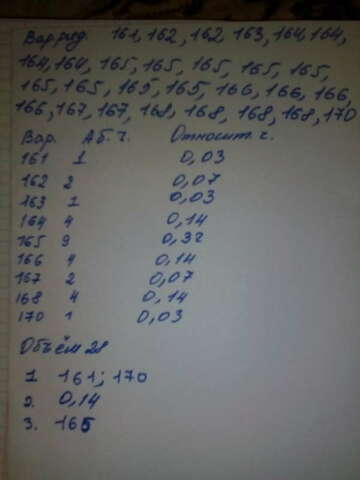 Вар.ряд. 161, 162, 162, 163, 164, 164,
164, 164, 165, 165, 165, 165, 165,
165, 165, 165, 165, 166, 166, 166,
166, 167, 167, 168, 168, 168, 168, 170
Вар. Аб.ч. Относит.ч.
161 1 0,03
162 2 0,07
163 1 0,03
164 4 0,14
165 9 0,32
166 4 0,14
167 2 0,07
168 4 0,14
170 1 0,03
Объём 28
1. 161; 170
2. 0,14
3. 165